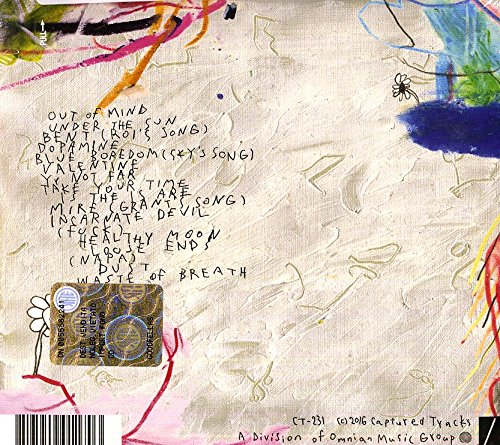 OUT OF MIND
UNDER THE SUN
BENT (ROI'S SONG)
DOPAMINE
BLUE BOREDOM (SKY'S SONG)
VALENTINE
YR NOT FAR
TAKE YOUR TIME
IS THE IS ARE
MIRE (GRANT'S SONG)
INCARNATE DEVIL
(FUCK)
HEALTHY MOON
LOOSE ENDS
(NAPA)
DUST
WASTE OF BREATH
CT-231 (c) 2016 Captured Tracks
A Division of Omnian Music Group